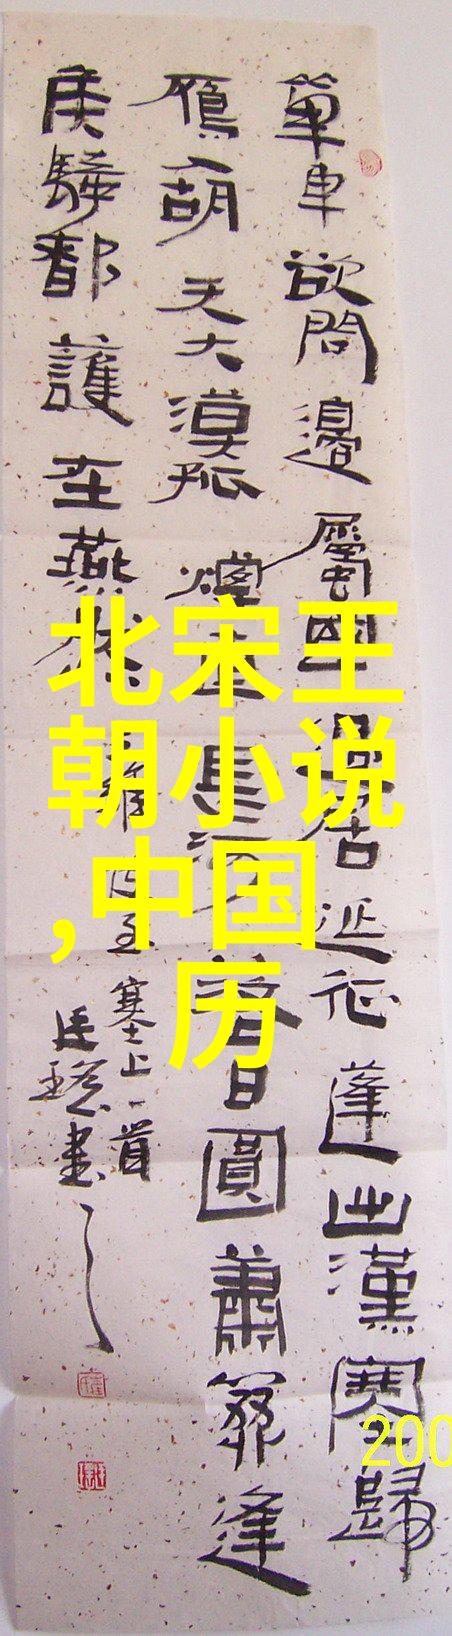 單車欲問邊屬國過居延征蓬出漢塞歸
鴈入胡天大漠孤煙直長河落日圓蕭關逢
侯騎都護在燕然
維使至塞上一首
書
北宋王
朝小说
,中国
历
200